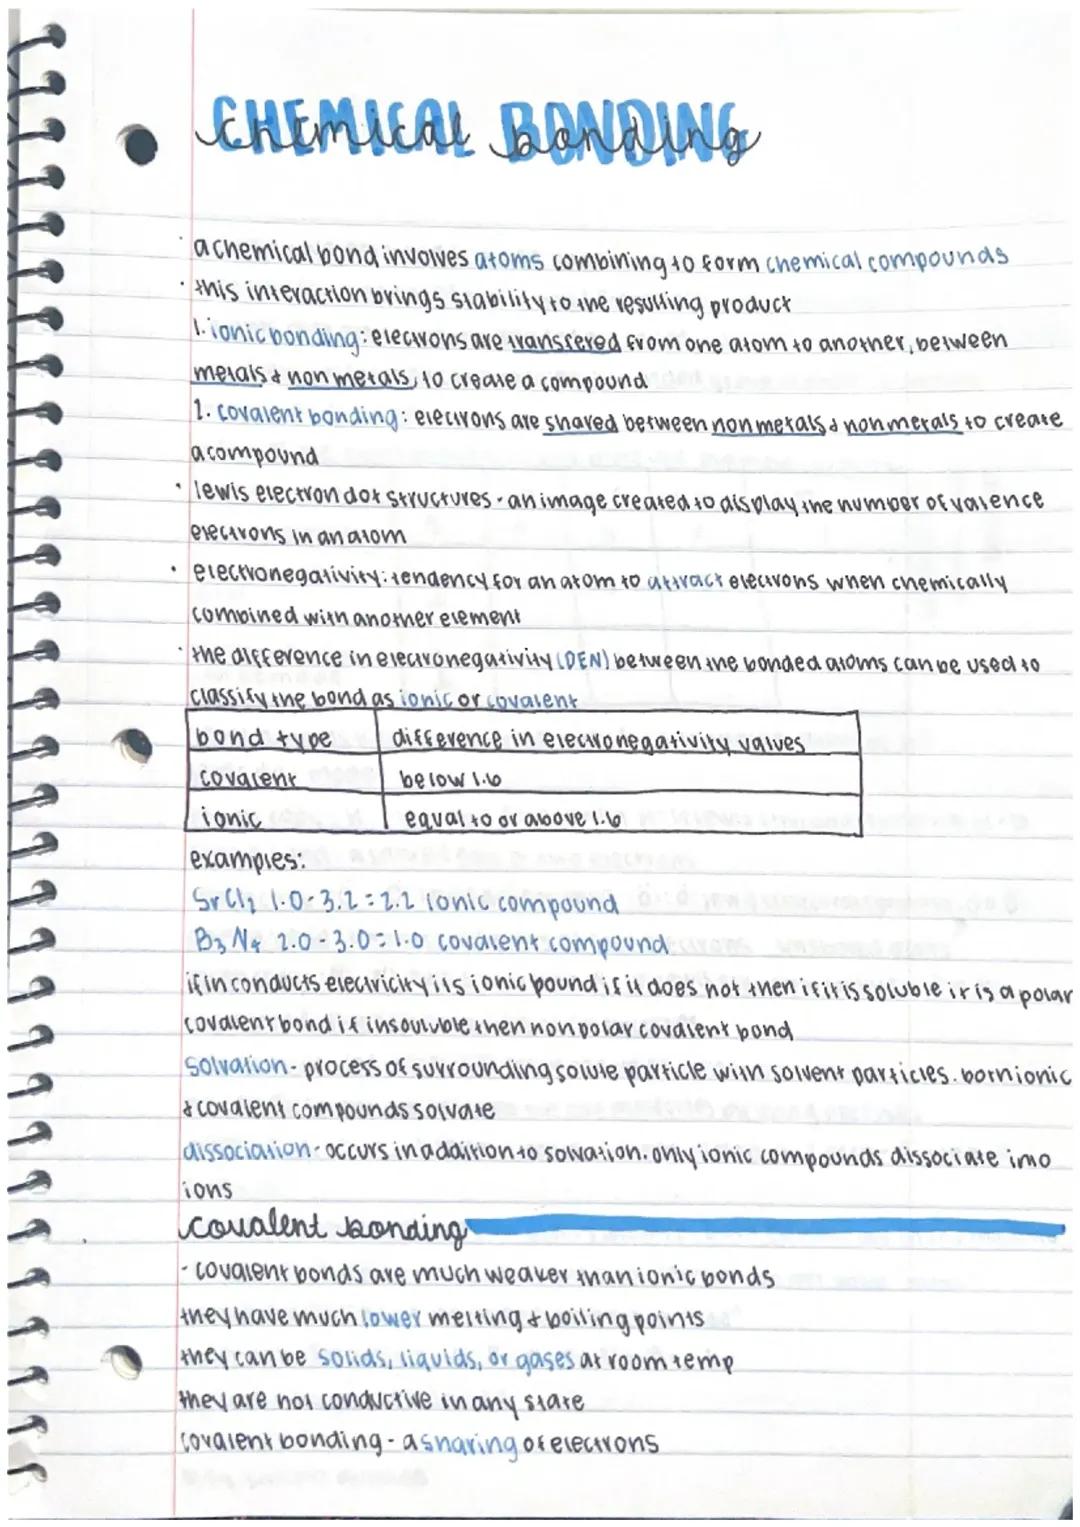 CHEMICAL BONDING
chemical bonding
· a chemical bond involves atoms combining to form chemical compounds
· this interaction brings stability to the resulting product
1. ionic bonding: electrons are transfered from one atom to another, between
metals & non metals, to create a compound
2. covalent bonding: electrons are shared between nonmetals & nonmetals to create
a compound
· lewis electron dot structures - an image created to display the number of valence
electrons in an atom
· electronegativity: tendency for an atom to attract electrons when chemically
combined with another element
· the difference in electronegativity (DEN) between the bonded atoms can be used to
classify the bond as ionic or covalent
bond type difference in electronegativity values
covalent below 1.6
ionic equal to or above 1.6
examples:
SrCl2 1.0-3.2=2.2 ionic compound
B3N4 2.0-3.0=1.0 covalent compound
if in conducts electricity its ionic bound if it does not then if it is soluble it is a polar
covalent bond if insouluble then nonpolar covalent bond
solvation- process of surrounding solute particle with solvent particles. both ionic
& covalent compounds solvate
dissociation- occurs in addition to solvation. only ionic compounds dissociate into
ions
covalent bonding
- covalent bonds are much weaker than ionic bonds
they have much lower melting & boiling points
they can be solids, liquids, or gases at room temp
they are not conductive in any state
covalent bonding - a sharing of electrons